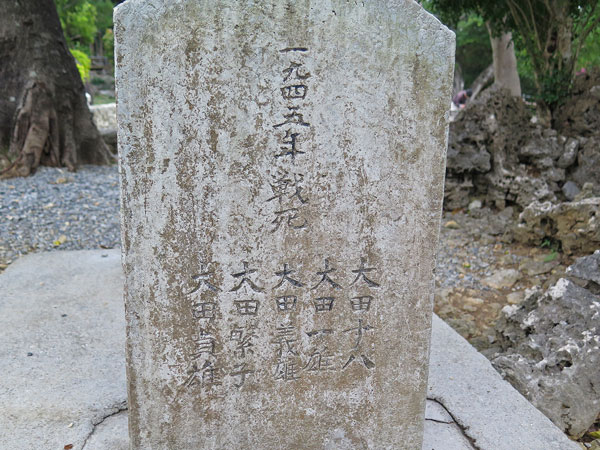 一九四五年戦死
大田十八
大田一雄
大田義雄
大田繁子
大田貞雄